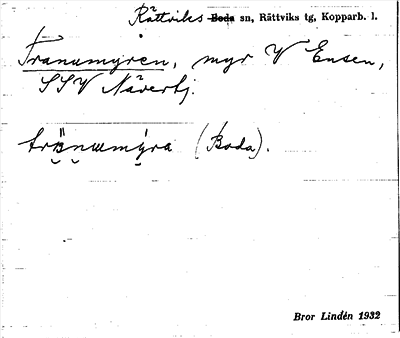 Rättviks Boda sn, Rättviks tg, Kopparb. l.
Tranumyren, myr V Ensen,
SSV Nävertj.
tränumýra (Boda).
Bror Lindén 1932